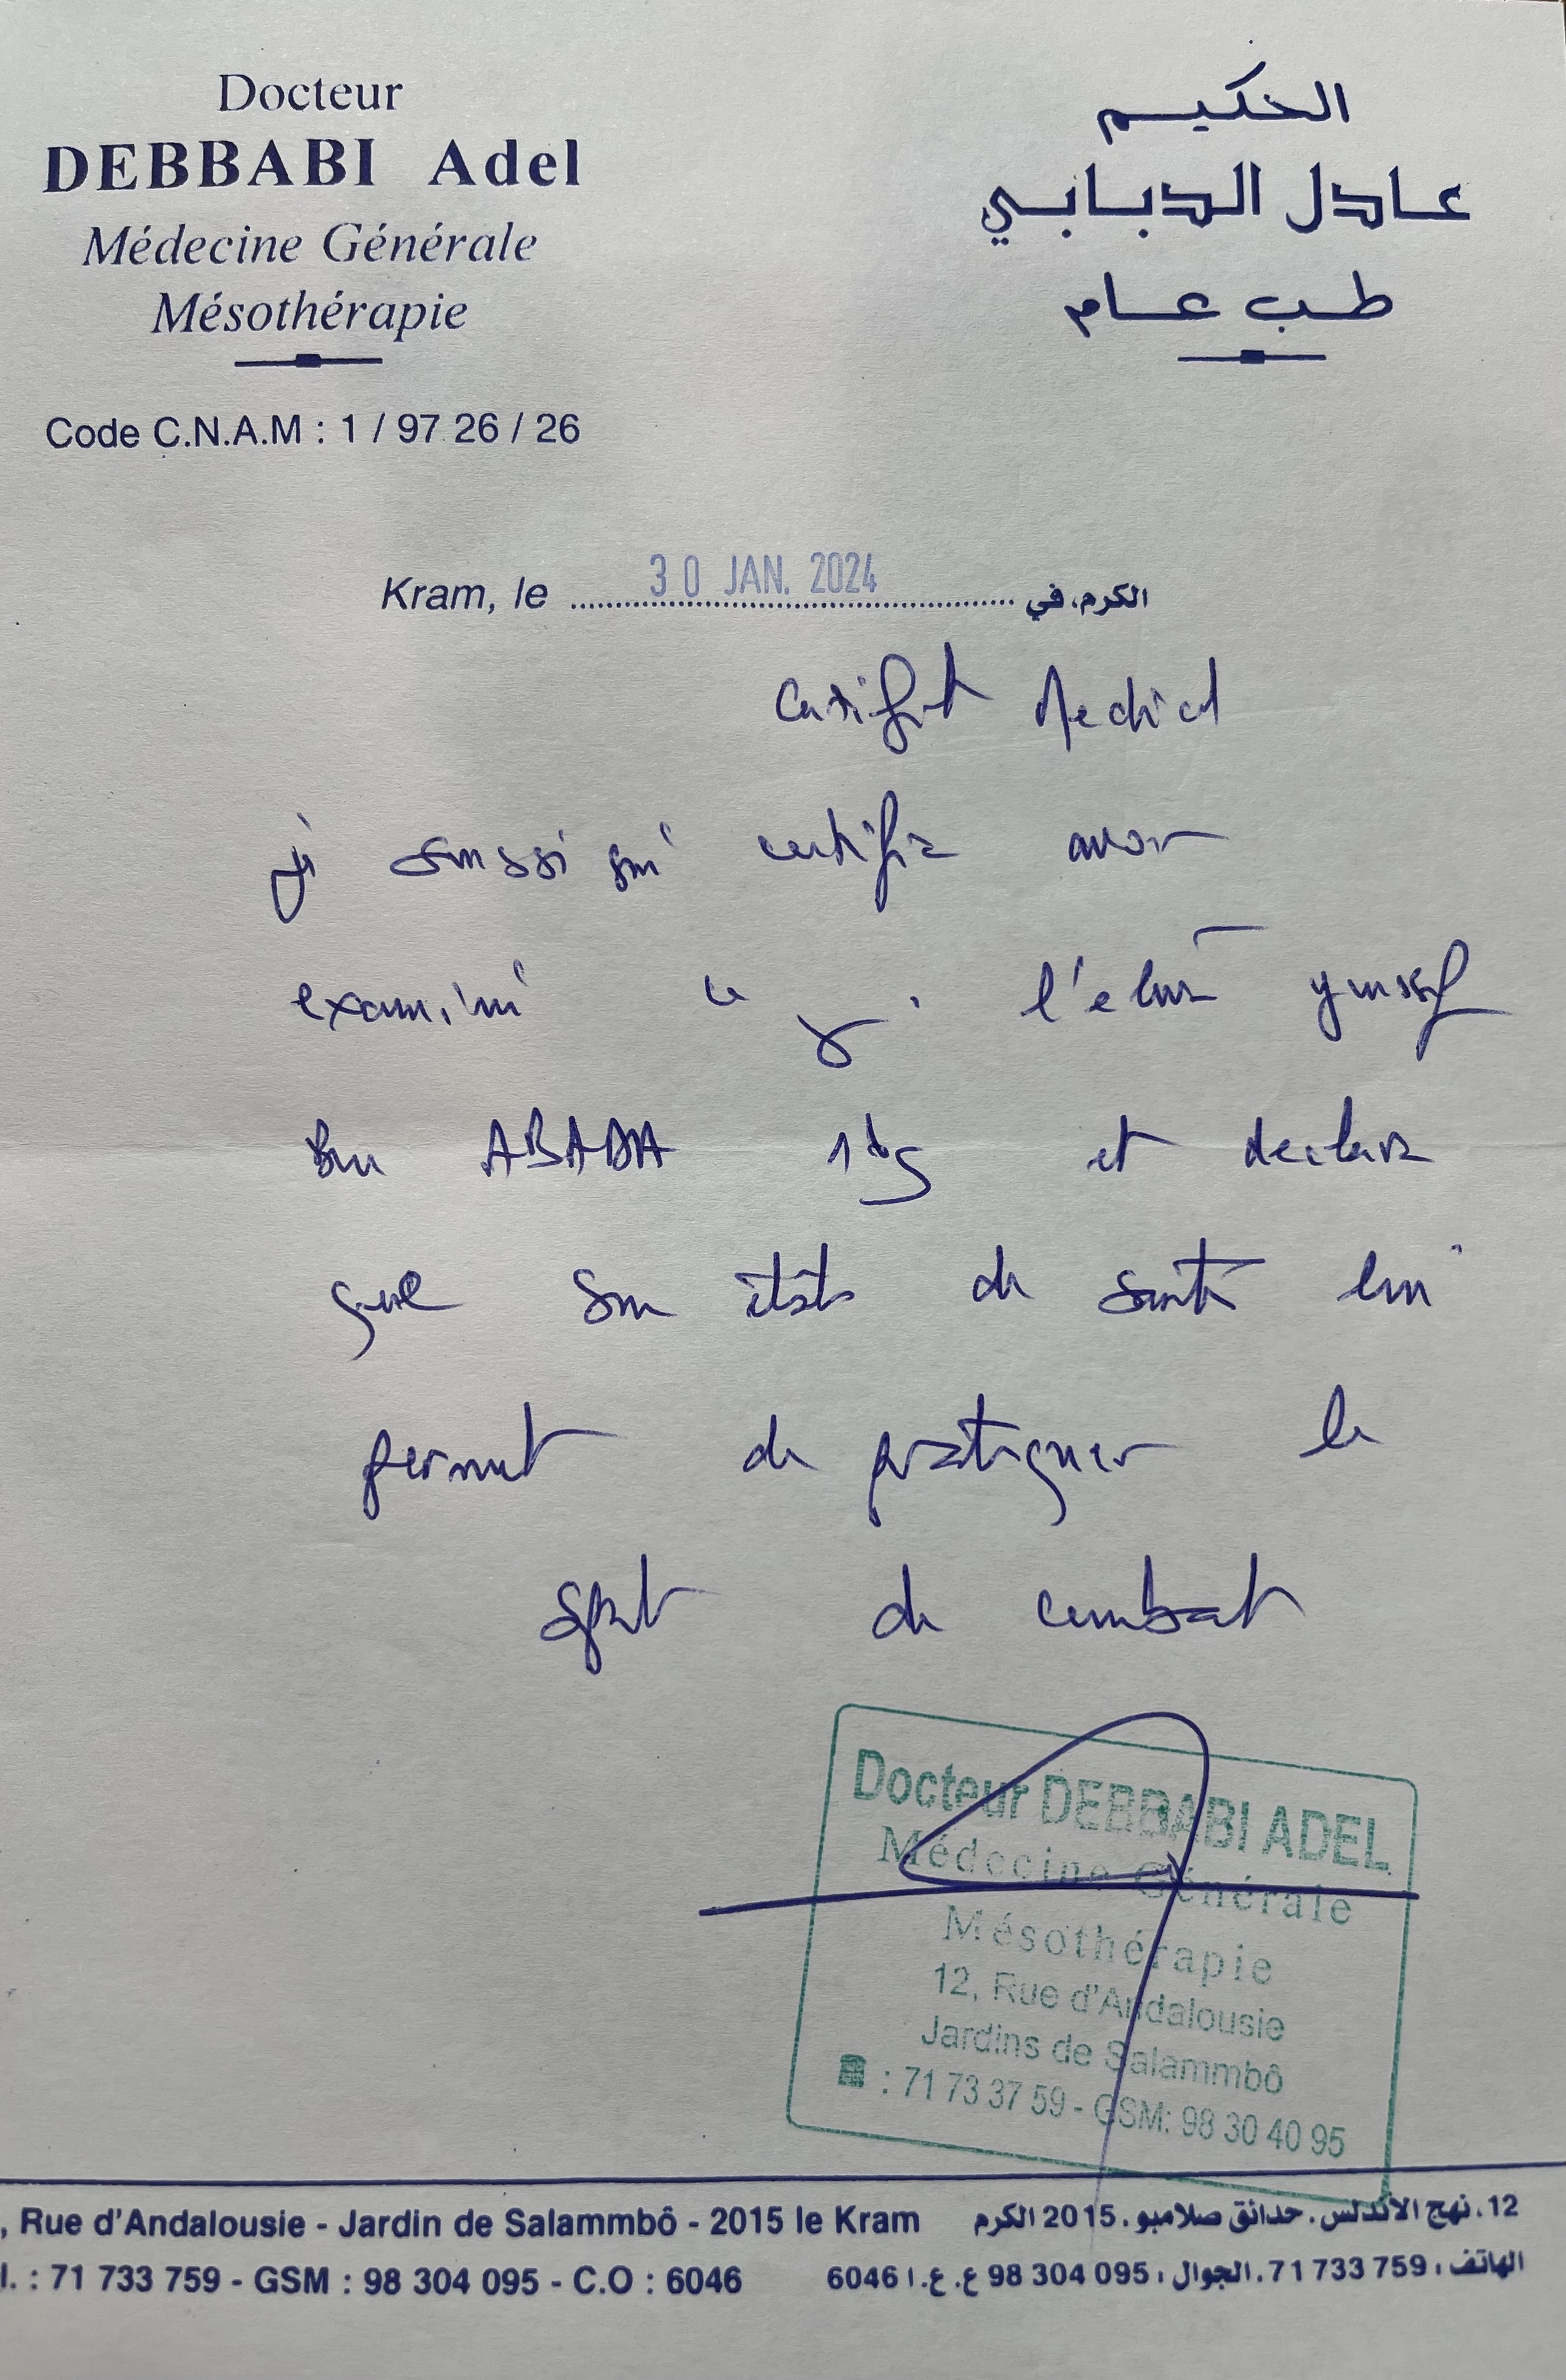 Docteur
DEBBABI Adel
Médecine Générale
Mésothérapie
Code C.N.A.M : 1 / 97 26 / 26
الحكيم
عادل الدبابي
طب عام
Kram, le 30 JAN. 2024 الكرم، في
Certificat Medical
soussigné certifie avoir
examiné ce l'eleve youssef
Ben ABADA et declare
que son état de santé lui
permet de pratiquer le
sport de combat
Docteur DEBBABI ADEL
Médecine Générale
Mésothérapie
12, Rue d'Andalousie
Jardins de Salammbô
: 71 73 37 59 - GSM: 98 30 40 95
, Rue d'Andalousie - Jardin de Salammbô - 2015 le Kram
12، نهج الأندلس، حدائق صلامبو، 2015 الكرم
l. : 71 733 759 - GSM : 98 304 095 - C.O : 6046
الهاتف : 71 733 759، الجوال : 98 304 095 ع.ع.ا 6046